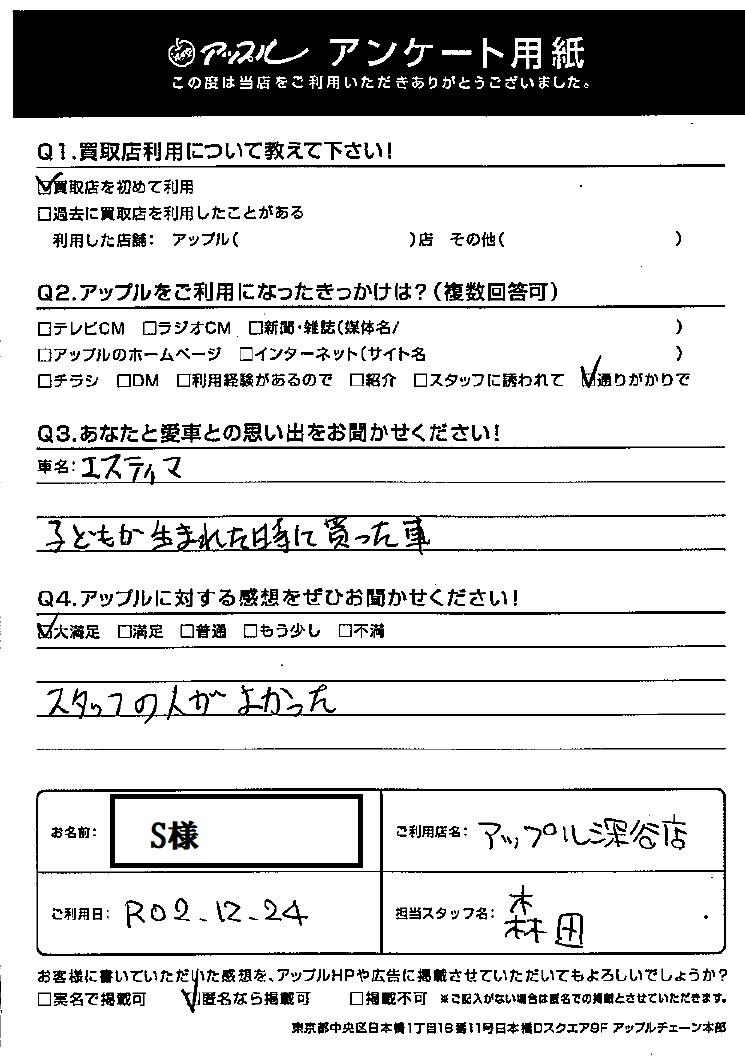 アップル アンケート用紙
この度は当店をご利用いただきありがとうございました。
Q1.買取店利用について教えて下さい!
☑買取店を初めて利用
□過去に買取店を利用したことがある
利用した店舗: アップル( )店 その他( )
Q2.アップルをご利用になったきっかけは?(複数回答可)
□テレビCM □ラジオCM □新聞・雑誌(媒体名/ )
□アップルのホームページ □インターネット(サイト名 )
□チラシ □DM □利用経験があるので □紹介 □スタッフに誘われて ☑通りがかりで
Q3.あなたと愛車との思い出をお聞かせください!
車名: エスティマ
子どもが生まれた時に買った車
Q4.アップルに対する感想をぜひお聞かせください!
☑大満足 □満足 □普通 □もう少し □不満
スタッフの人がよかった
お名前: S様
ご利用店名: アップル深谷店
ご利用日: R02-12-24
担当スタッフ名: 森田
お客様に書いていただいた感想を、アップルHPや広告に掲載させていただいてもよろしいでしょうか?
□実名で掲載可 ☑匿名なら掲載可 □掲載不可 ※ご記入がない場合は匿名での掲載とさせていただきます。
東京都中央区日本橋1丁目16番11号日本橋Dスクエア9F アップルチェーン本部